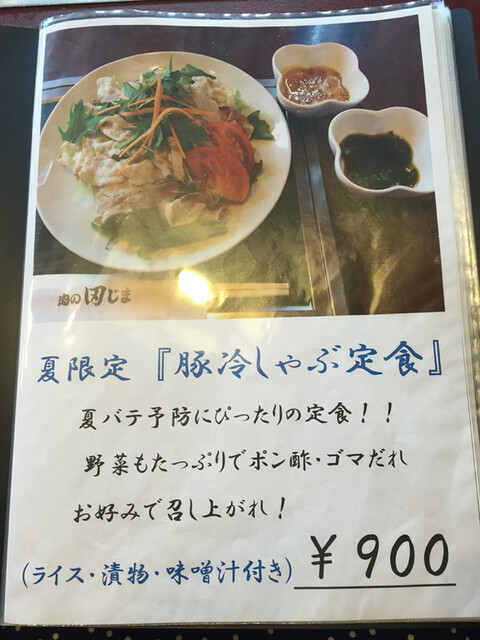 肉の田じま
夏限定『豚冷しゃぶ定食』
夏バテ予防にぴったりの定食！！
野菜もたっぷりでポン酢・ゴマだれ
お好みで召し上がれ！
(ライス・漬物・味噌汁付き) ￥900